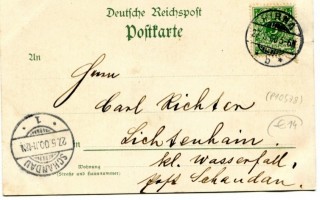 Deutsche Reichspost
Postkarte
An
Herrn
Carl Richter
Lichtenhain.
kl. Wasserfall,
Post Schandau.
Wohnung
(Straße und Hausnummer)
SCHANDAU
22.5.00.
1
€14